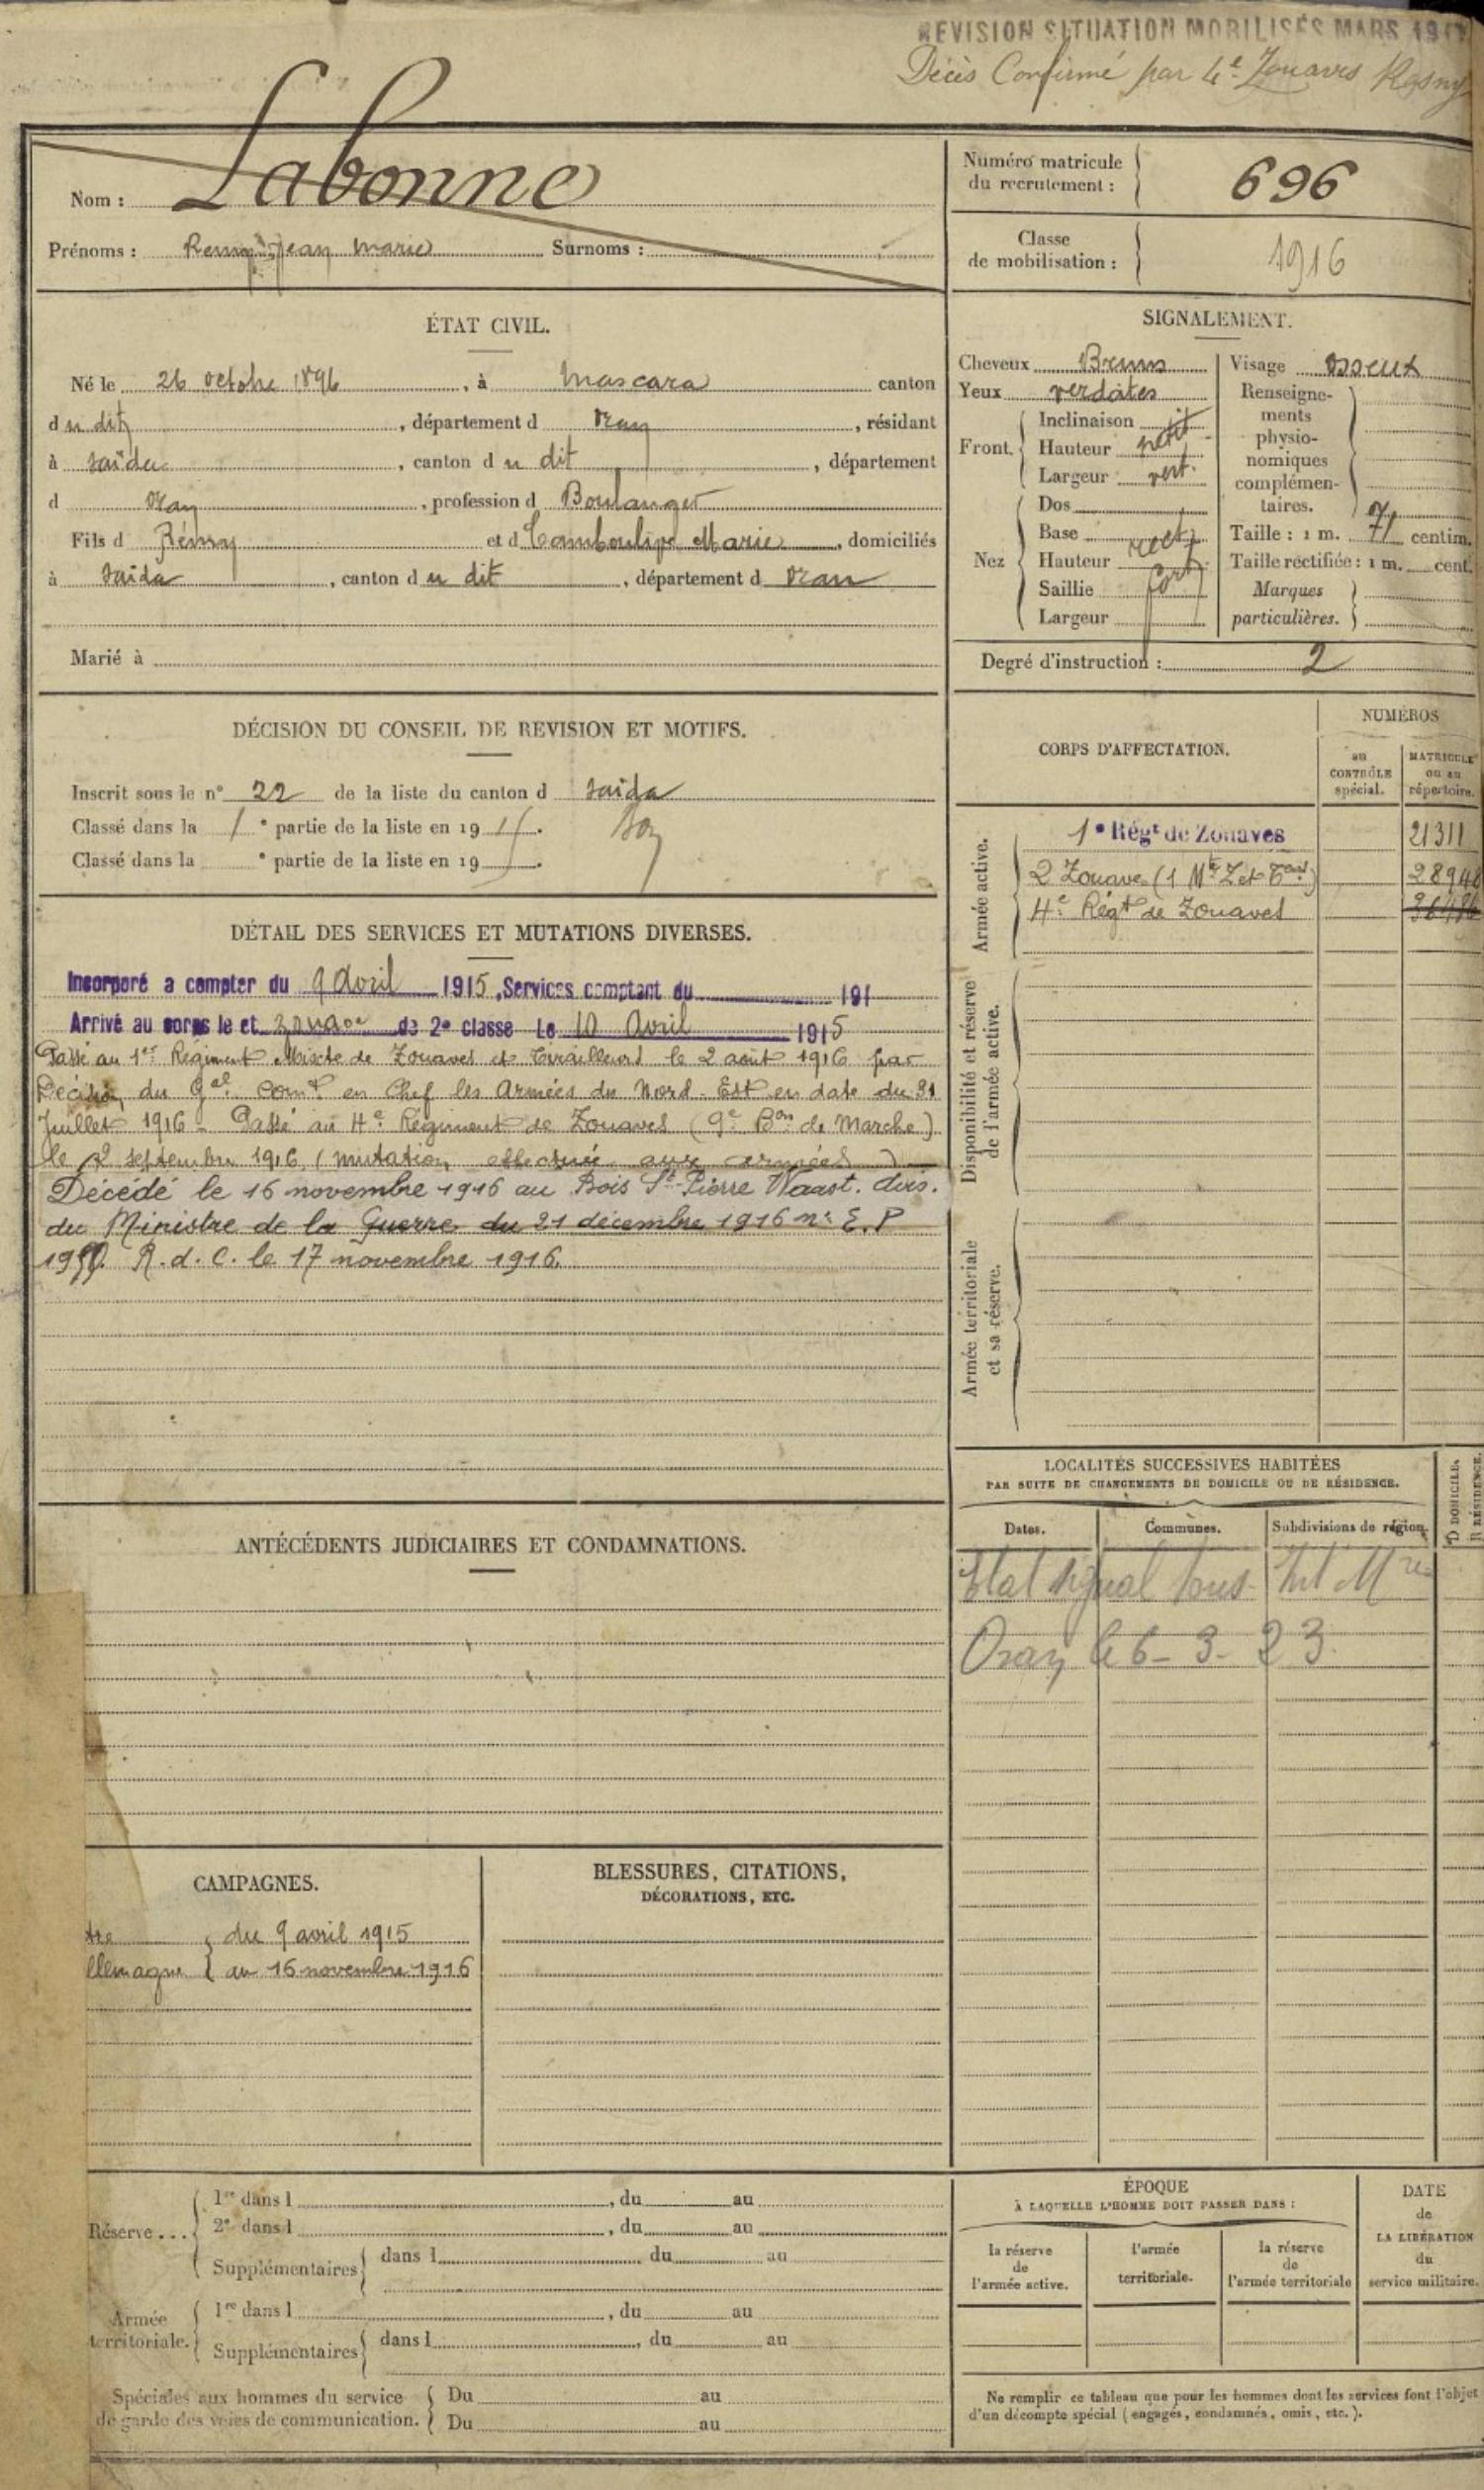 REVISION SITUATION MOBILISÉS MARS
Décès Confirmé par 4e Zouaves Rosny
Nom : Labonne
Prénoms : Remy Jean Marie Surnoms :
Numéro matricule du recrutement : 696
Classe de mobilisation : 1916
ÉTAT CIVIL.
Né le 26 octobre 1896, à Mascara canton
du dit, département d Oran, résidant
à Saïda, canton du dit, département
d Oran, profession d Boulanger
Fils d Rémy et d Marie, domiciliés
à Saïda, canton du dit, département d Oran
Marié à
SIGNALEMENT.
Cheveux Bruns
Yeux verdâtes
Front. Inclinaison
Hauteur petit
Largeur vert.
Nez Dos
Base rect.
Hauteur
Saillie fort
Largeur
Visage osseux
Renseigne-
ments
physio-
nomiques
complémen-
taires.
Taille : 1 m. 71 centim.
Taille rectifiée : 1 m. cent.
Marques
particulières.
Degré d'instruction : 2
DÉCISION DU CONSEIL DE REVISION ET MOTIFS.
Inscrit sous le n° 22 de la liste du canton d Saïda
Classé dans la 1e partie de la liste en 1915. Bon
Classé dans la e partie de la liste en 19
DÉTAIL DES SERVICES ET MUTATIONS DIVERSES.
Incorporé a compter du 9 Avril 1915, Services comptant du 191
Arrivé au corps le et zouave de 2e classe Le 10 Avril 1915
Passé au 1er Régiment Mixte de Zouaves et Tirailleurs le 2 août 1916 par
Décision du Gal Comt en Chef les Armées du Nord-Est en date du 31
Juillet 1916 - Passé au 4e Régiment de Zouaves (9e Bon de Marche)
le septembre 1916 (mutation effectuée aux armées)
Décédé le 16 novembre 1916 au Bois St Pierre Waast. avis.
du Ministre de la Guerre du 21 décembre 1916 n° E.P
R.d.C. le 17 novembre 1916.
CORPS D'AFFECTATION.
NUMÉROS
au CONTRÔLE spécial.
MATRICULE ou au répertoire.
Armée active.
1e Régt de Zouaves 21311
2 Zouaves (1 Mte Z et ) 28940
4e Régt de Zouaves
Disponibilité et réserve de l'armée active.
Armée territoriale et sa réserve.
LOCALITÉS SUCCESSIVES HABITÉES
PAR SUITE DE CHANGEMENTS DE DOMICILE OU DE RÉSIDENCE.
Dates. Communes. Subdivisions de région.
D DOMICILE.
R RÉSIDENCE.
Etat signal
Oran le 6-3-23
ANTÉCÉDENTS JUDICIAIRES ET CONDAMNATIONS.
CAMPAGNES.
tre du 9 avril 1915
llemagne au 16 novembre 1916
BLESSURES, CITATIONS,
DÉCORATIONS, ETC.
Réserve... 1re dans l , du au
2e dans l , du au
Supplémentaires dans l du au
Armée territoriale. 1re dans l , du au
Supplémentaires dans l , du au
Spéciales aux hommes du service Du au
de garde des voies de communication. Du au
ÉPOQUE
À LAQUELLE L'HOMME DOIT PASSER DANS :
la réserve de l'armée active.
l'armée territoriale.
la réserve de l'armée territoriale
DATE
de
LA LIBÉRATION
du
service militaire.
Ne remplir ce tableau que pour les hommes dont les services font l'objet
d'un décompte spécial (engagés, condamnés, omis, etc.).